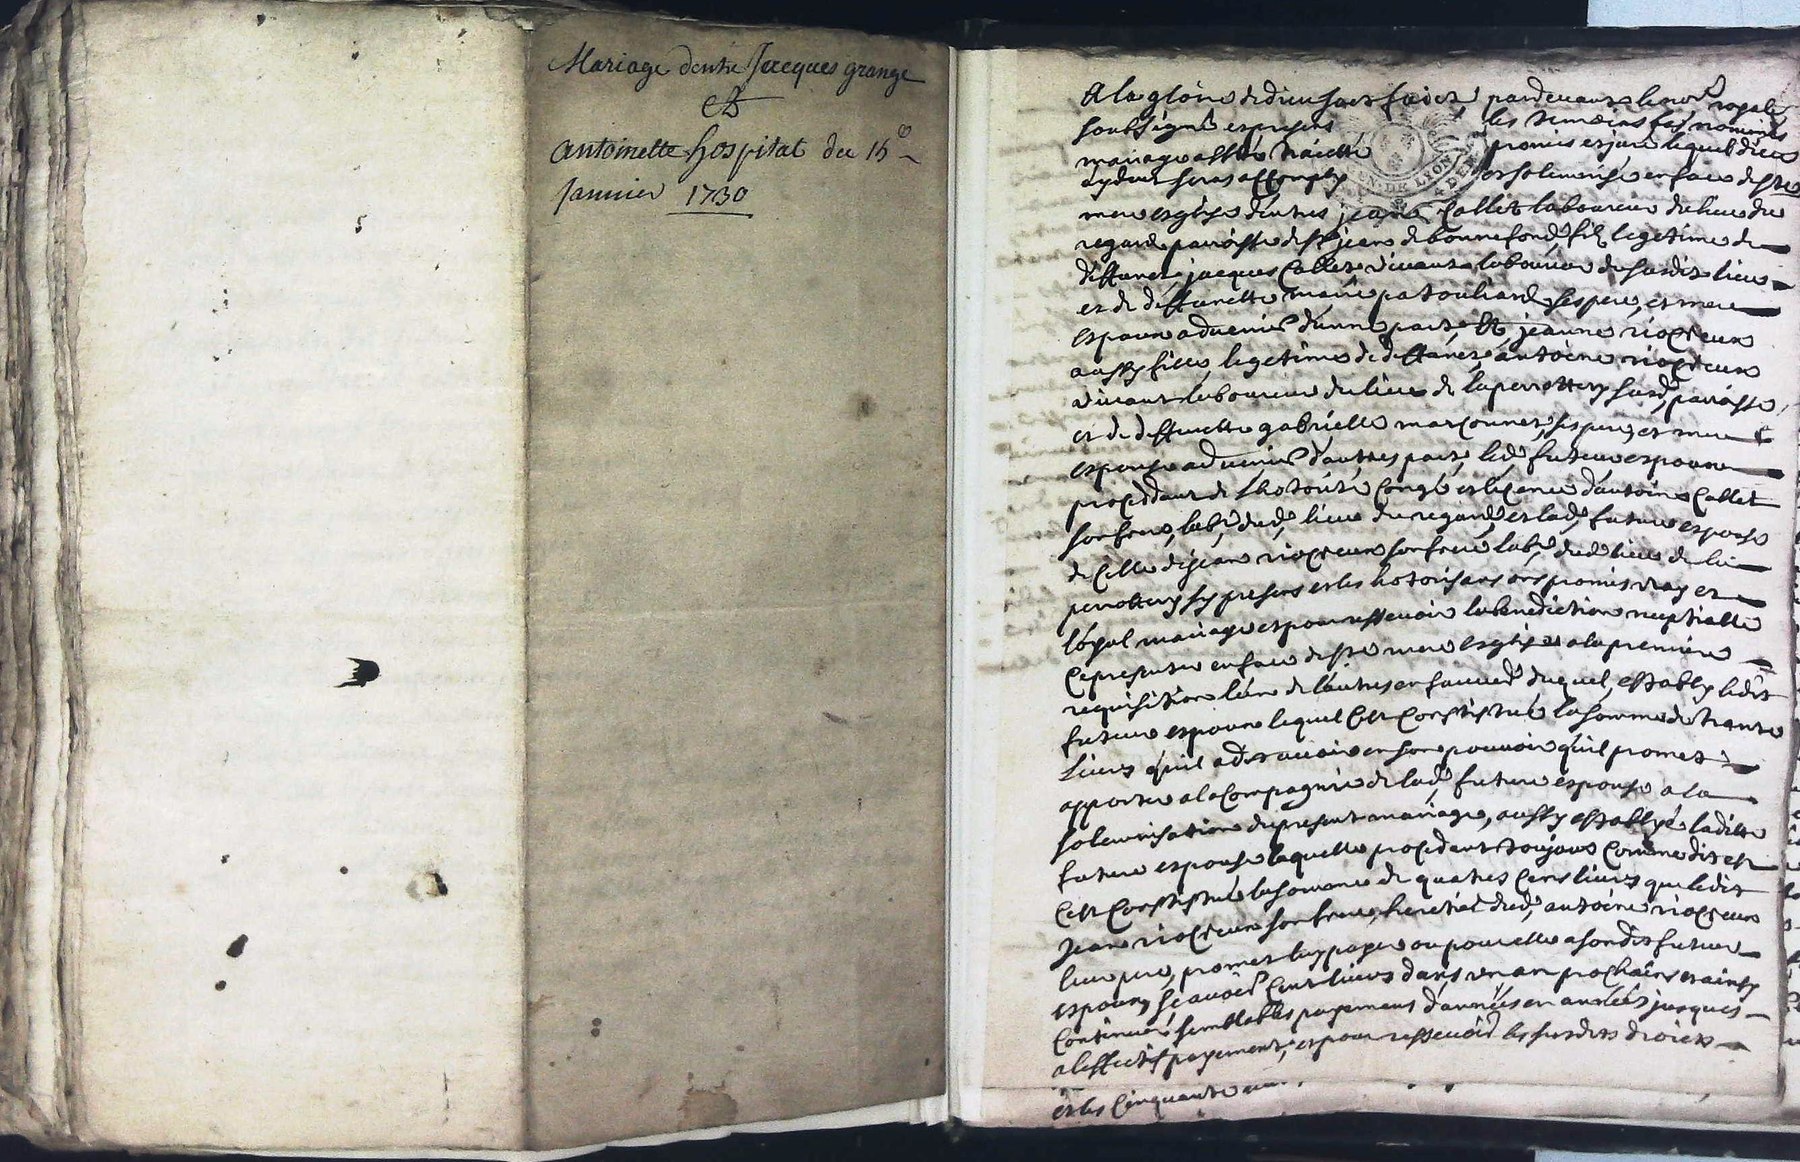 Mariage dentre Jacques grange
et
antoinette hospital du 15e
Janvier 1730
A la gloire de dieu soit faict, pardevant le nore royal
soubsigné et presens les tesmoins bas nommés
mariage a esté traicté promis et juré lequel dieu
aydant seras accomply et solemnisé en face de ste
mere esglise d'entres jean Collet laboureur du lieu du
regard parroisse de st jean de bonnefond, filz legetime de
deffunct jacques Collet vivant laboureur du susdit lieu
et de deffunette marie patouliard ses pere, et mere
espoux advenir d'unne part, Et jeanne riocreux
aussy fille, legetime de deffunct, antoine riocreux
vivant laboureur du lieu de la perrottery susd, parroisse,
et de deffunette gabrielle marconnet, ses pere, et mere
espouse advenir d'autres part, led, future espoux
procedant de l'hotorité congé et licence d'antoine Collet
son frere, labr, dud, lieu du regard, et lad, future espouse
de celle de jean riocreux son frere labr, dud lieu de la
perrottery sy presens et les hotorisans ont promis vray et
légal mariage et pour ressevoir la benediction nuptialle
ce presenter en face de ste mere esglize a la premiere
requisition l'un de l'autres en faveur duquel, estably ledit
future espoux lequel c'est constitué la somme de trante
livres qu'il a dit avoir en son pouvoir qu'il promet
apporter a la compagnie de lad, future espouse a la
solemnisation du present mariage, aussy establye laditte
future espouse laquelle procedant toujours comme dit est
c'est constitué la somme de quatres cens livres que ledit
Jean riocreux son frere, heretier dud, antoine riocreux
leur pere, promet luy payer ou pour elle a son dit future
espoux, sçavoir cent livres dans un an prochain et ainsy
continuer semblables payemens d'années en années jusques
a l'effectif payement, et pour ressevoir les susdits droicts
et les cinquante
LYON